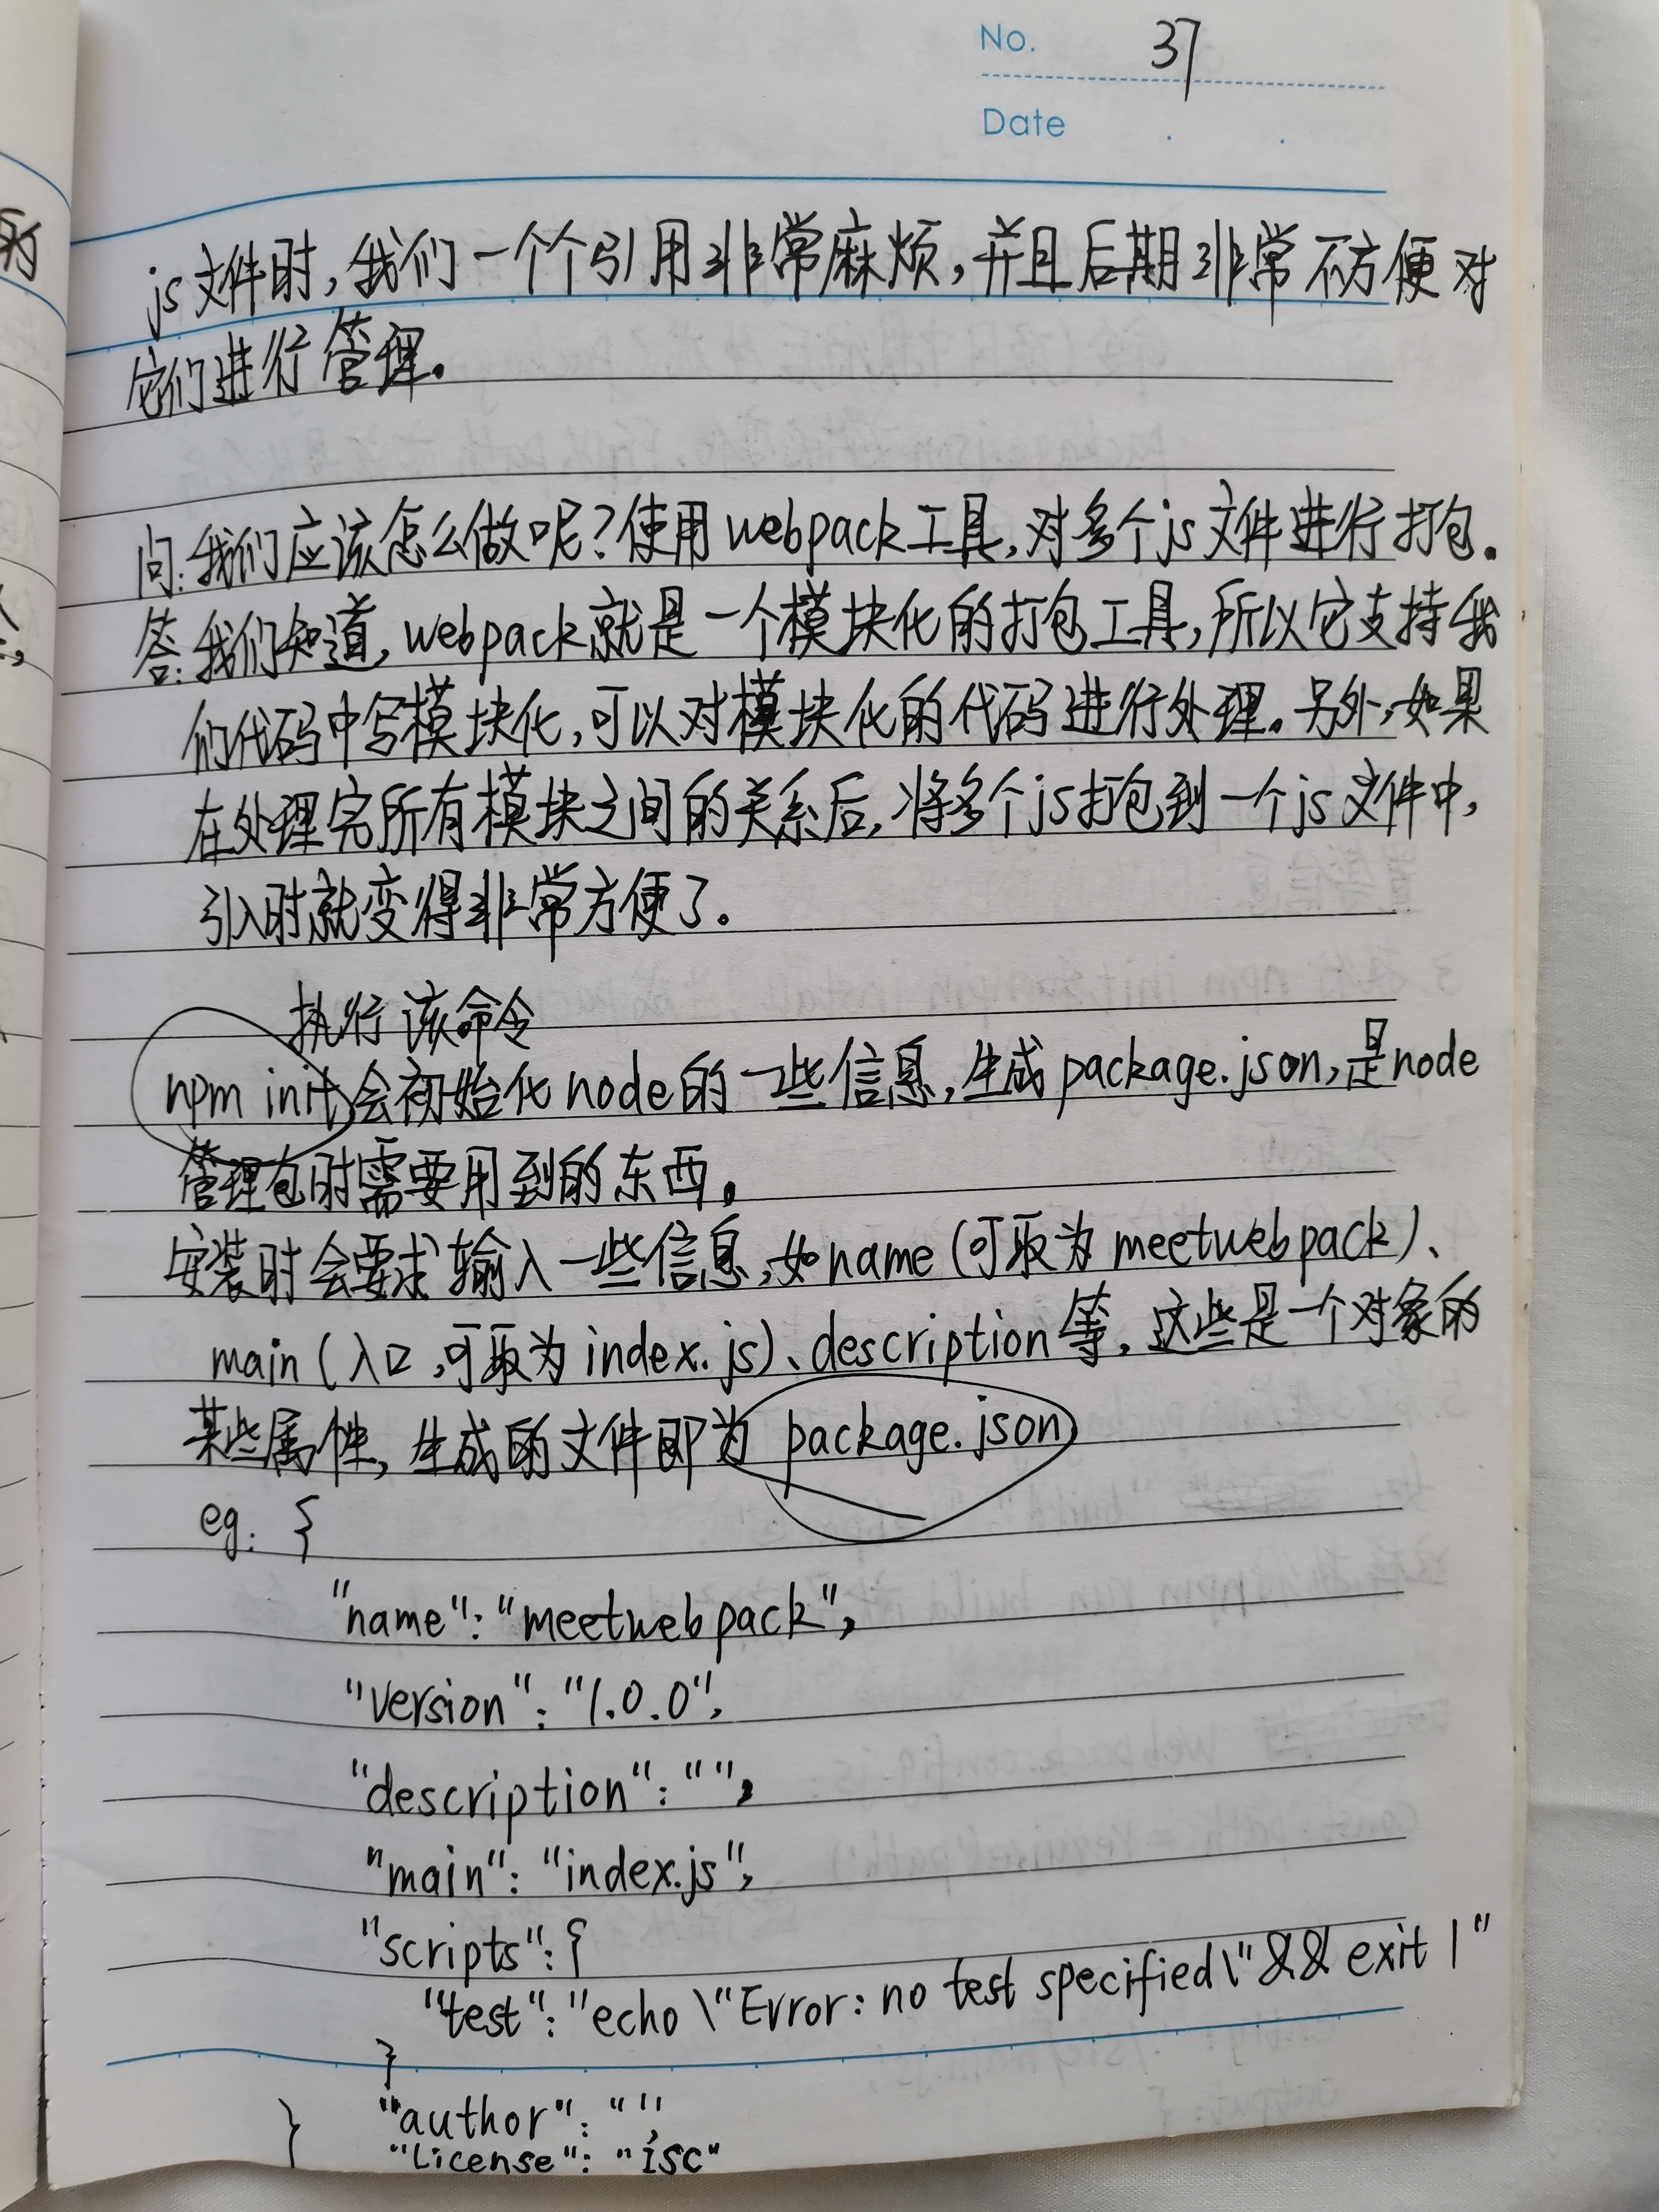 No. 37
Date
js文件时,我们一个个引用非常麻烦,并且后期非常不方便对
它们进行管理。
问:我们应该怎么做呢?使用webpack工具,对多个js文件进行打包.
答:我们知道,webpack就是一个模块化的打包工具,所以它支持我
们代码中写模块化,可以对模块化的代码进行处理。另外,如果
在处理完所有模块之间的关系后,将多个js打包到一个js文件中,
引入时就变得非常方便了。
执行该命令
npm init会初始化node的一些信息,生成package.json,是node
管理包时需要用到的东西。
安装时会要求输入一些信息,如name(可取为meetwebpack)、
main(入口,可取为index.js)、description等,这些是一个对象的
某些属性,生成的文件即为package.json
eg: {
"name":"meetwebpack",
"version":"1.0.0",
"description":"",
"main":"index.js",
"scripts":{
"test":"echo \"Error: no test specified\"&& exit 1"
}
"author":"",
} "License":"isc"